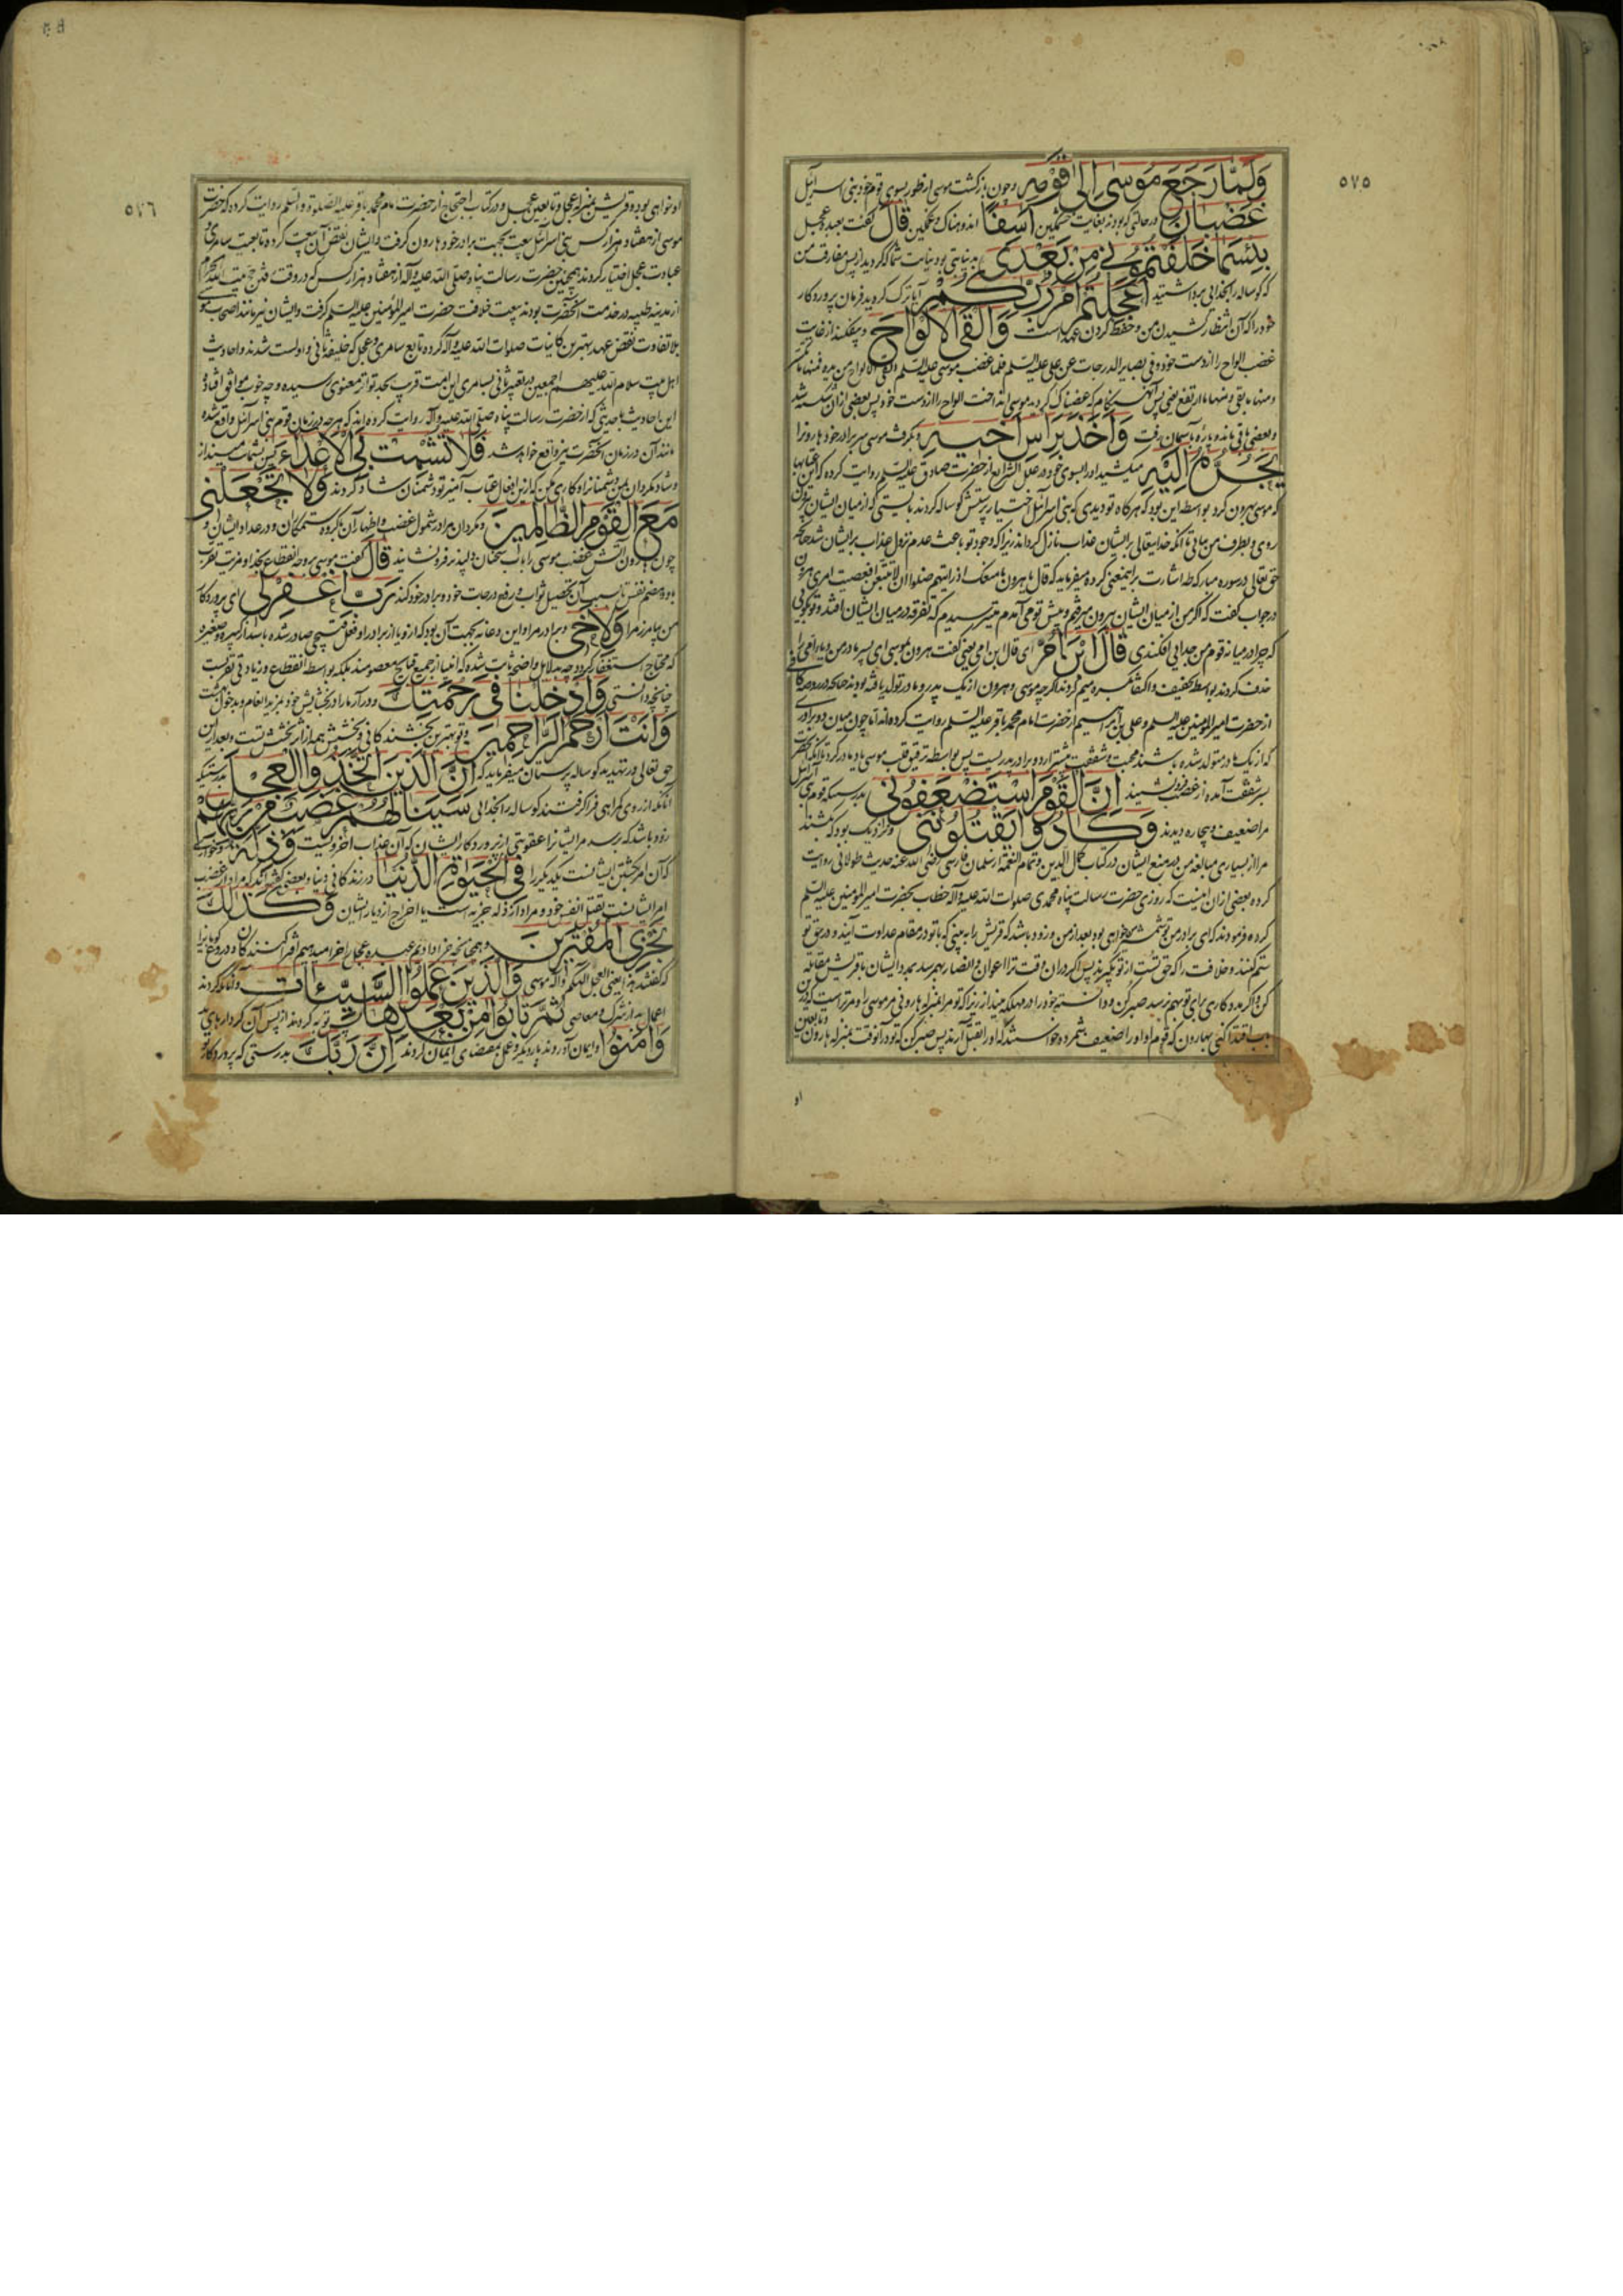 ٥٧٥
وَلَمَّا رَجَعَ مُوسى اِلى قَوْمِه وچون بازگشت موسی از طور بسوی قوم خود بنی اسرائیل
غَضْبانَ در حالتی که بود بغایت خشمگین اَسِفًا اندوهناک و غمگین قالَ گفت بعبده عجل
بِئْسَمَا خَلَفْتُمُونى مِنْ بَعْدى بد نیابتی بود نیابت شما که کردید از پس مفارقت من
که گوساله را بخدایی برداشتید اَعَجِلْتُمْ اَمْرَ رَبِّكُمْ آیا ترک کردید فرمان پروردگار
خود را که آن انتظار کشیدن من و حفظ کردن عهد است وَاَلْقَى الْاَلْواحَ و بیفکند از غایت
غضب الواح را از دست خود و فی بصایر الدرجات عن علی علیه السلم فلما غضب موسی علیه السلم القی الالواح من یده فمنها ما تکسر
ومنها ما بقی ومنها ما ارتفع یعنی پس آن هنگام که غضبناک گردید موسی انداخت الواح را از دست خود پس بعضی از آن شکسته شد
و بعضی باقی ماند و پاره بآسمان رفت وَاَخَذَ بِرَاْسِ اَخيهِ و بگرفت موسی سر برادر خود هارونرا
يَجُرُّهُ اِلَيْهِ میکشید او را بسوی خود و در علل الشرایع از حضرت صادق علیه السلم روایت کرده که این عتابها
که موسی بهرون کرد بواسطه این بود که هرگاه تو دیدی که بنی اسرائیل اختیار پرستش گوساله کردند بایستی که از میان ایشان بیرون
روی و بطرف من بیائی تا آنکه خدایتعالی بر ایشان عذاب نازل گرداند زیرا که وجود تو باعث عدم نزول عذاب بر ایشان شد چنانچه
حق تعالی در سوره مبارکه طه اشارت براینمعنی کرده میفرماید که قال یا هرون ما منعک اذ رایتهم ضلوا ان لا تتبعن افعصیت امری هرون
در جواب گفت که اگر من از میان ایشان بیرون میرفتم و پیش تو می آمدم میترسیدم که تفرقه در میان ایشان افتد و تو بگویی
که چرا در میانه قوم من جدایی افکندی قالَ ابْنَ اُمَّ ای قال ابن امی یعنی گفت هرون بموسی ای پسر مادر من و یاء امی را
حذف کردند بواسطه تخفیف و اکتفا بکسره میم کردند اگرچه موسی و هرون از یک پدر و مادر تولد یافته بودند چنانچه در روضه کافی
از حضرت امیر المومنین علیه السلم و علی بن ابراهیم از حضرت امام محمد باقر علیه السلم روایت کرده اند اما چون میان دو برادر
که از یک مادر متولد شده باشند محبت و شفقت بیشتر از دو برادر پدریست پس بواسطه ترقیق قلب موسی یاد مادر کرد تا آنکه آنحضرت
بر شفقت آمده از غضب فرو نشیند اِنَّ الْقَوْمَ اسْتَضْعَفُونى بدرستیکه قوم بنی اسرائیل
مرا ضعیف و بیچاره دیدند وَكادُوا يَقْتُلُونَنى و نزدیک بود که بکشند
مرا از بسیاری مبالغه من در منع ایشان در کتاب کمال الدین و تمام النعمة از سلمان فارسی رضی الله عنه حدیث طولانی روایت
کرده بعضی از ان اینست که روزی حضرت رسالت پناه محمدی صلوات الله علیه و آله خطاب بحضرت امیر المومنین علیه السلم
کرده فرمودند که ای برادر من تو خواهی بود بعد از من و زود باشد که قریش را به بینی که با تو در مقام عداوت آیند و در حق تو
ستم کنند و خلافت را که حق تست از تو بگیرند پس اگر در ان وقت ترا اعوان و انصار بهم رسد بمدد ایشان با قریش مقابله
کن و اگر مددکاری برای تو بهم نرسد صبر کن و دانسته خود را در مهلکه مینداز زیرا که تو مرا بمنزله هارونی مر موسی را و مر تراست که درین
باب اقتدا کنی بهارون که قوم او او را ضعیف شمرده و خواستند که او را بقتل آرند پس صبر کن که تو در آنوقت بمنزله هارون و تابعین
او
٥٧٦
او خواهی بود و قریش بمنزله عجل و تابعین عجل و در کتاب احتجاج از حضرت امام محمد باقر علیه الصلوة والسلم روایت کرده که حضرت
موسی از هفتاد هزار کس بنی اسرائیل بیعت بجهت برادر خود هارون گرفت و ایشان نقض آن بیعت کرده تابعیت سامری و
عبادت عجل اختیار کردند همچنین حضرت رسالت پناه صلی الله علیه و آله از هفتاد هزار کس که در وقت حج بیت الله الحرام
از مدینه طیبه در خدمت آنحضرت بودند بیعت خلافت حضرت امیر المؤمنین علیه السلم گرفت و ایشان نیز مانند اصحاب موسی
بلا تفاوت نقض عهد بهترین کاینات صلوات الله علیه و آله کرده تابع سامری و عجل که خلیفه ثانی و اولست شدند و احادیث
اهل بیت سلام الله علیهم اجمعین در تعبیر ثانی بسامری این امت قریب بحد تواتر معنوی رسیده و چه خوب موافق افتاده
این احادیث با حدیثی که از حضرت رسالت پناه صلی الله علیه و آله روایت کرده اند که هر چه در زمان قوم بنی اسرائیل واقع شده
مانند آن در زمان آنحضرت نیز واقع خواهد شد فَلا تُشْمِتْ بِىَ الْاَعْداءَ پس بشماتت مینداز
و شاد مگردان بمن دشمنانرا و کاری مکن که از این افعال عتاب آمیز تو دشمنان شاد گردند وَلا تَجْعَلْنى
مَعَ الْقَوْمِ الظّالِمينَ و مگردان مرا در شمول غضب و اظهار آن با گروه ستمکاران و در عداد ایشان و
چون هرون آتش غضب موسی را باب سخنان دلپذیر فرو نشانید قالَ گفت موسی بر وجه انقطاع بخدا و مزیت تقرب
باو و هضم نفس بسبب آن تحصیل ثواب و رفع درجات خود و برادر خود کند رَبِّ اغْفِرْ لى ای پروردگار
من بیامرز مرا وَلِاَخى و برادر مرا و این دعا نه بجهت آن بود که از و یا از برادر او فعل قبیحی صادر شده باشد از کبیره و صغیره
که محتاج استغفار گردد چه بدلایل واضحه ثابت شده که انبیا از جمیع قبایح معصومند بلکه بواسطه انقطاع و زیادتی تقربست
چنانچه دانستی وَاَدْخِلْنا فى رَحْمَتِكَ و در آر ما را در بخشایش خود بمزید انعام و بدخول جنت
وَاَنْتَ اَرْحَمُ الرّاحِمينَ و تو بهترین بخشندگانی و بخشش همه از اثر بخشش تست و بعد از این
حق تعالی در تهدید گوساله پرستان میفرماید که اِنَّ الَّذينَ اتَّخَذُوا الْعِجْلَ بدرستیکه
آنانکه از روی گمراهی فرا گرفتند گوساله را بخدائی سَيَنالُهُمْ غَضَبٌ مِنْ رَبِّهِمْ
زود باشد که برسد مر ایشانرا عقوبتی از پروردگار ایشان که آن عذاب اخرویست وَذِلَّةٌ و خواری
که آن امر بکشتن ایشانست یکدیگر را فِى الْحَيوةِ الدُّنْيا در زندگانی دنیا و بعضی گفته اند که مراد از غضب
امر ایشانست بقتل انفس خود و مراد از ذله جزیه است یا اخراج از دیار ایشان وَكَذلِكَ
نَجْزِى الْمُفْتَرينَ و همچنانچه جزا دادیم عبده عجل را جزا میدهیم افترا کنندگان و دروغ گویانرا
که گفتند هذا یعنی العجل الهکم و اله موسی وَالَّذينَ عَمِلُوا السَّيِّئاتِ و آنانکه کردند
اعمال بد از شرک و معاصی ثُمَّ تابُوا مِنْ بَعْدِها پس توبه کردند از پس آن کردارهای بد
وَامَنُوا و ایمان آوردند بار دیگر و عمل بمقتضای ایمان کردند اِنَّ رَبَّكَ بدرستی که پروردگار تو